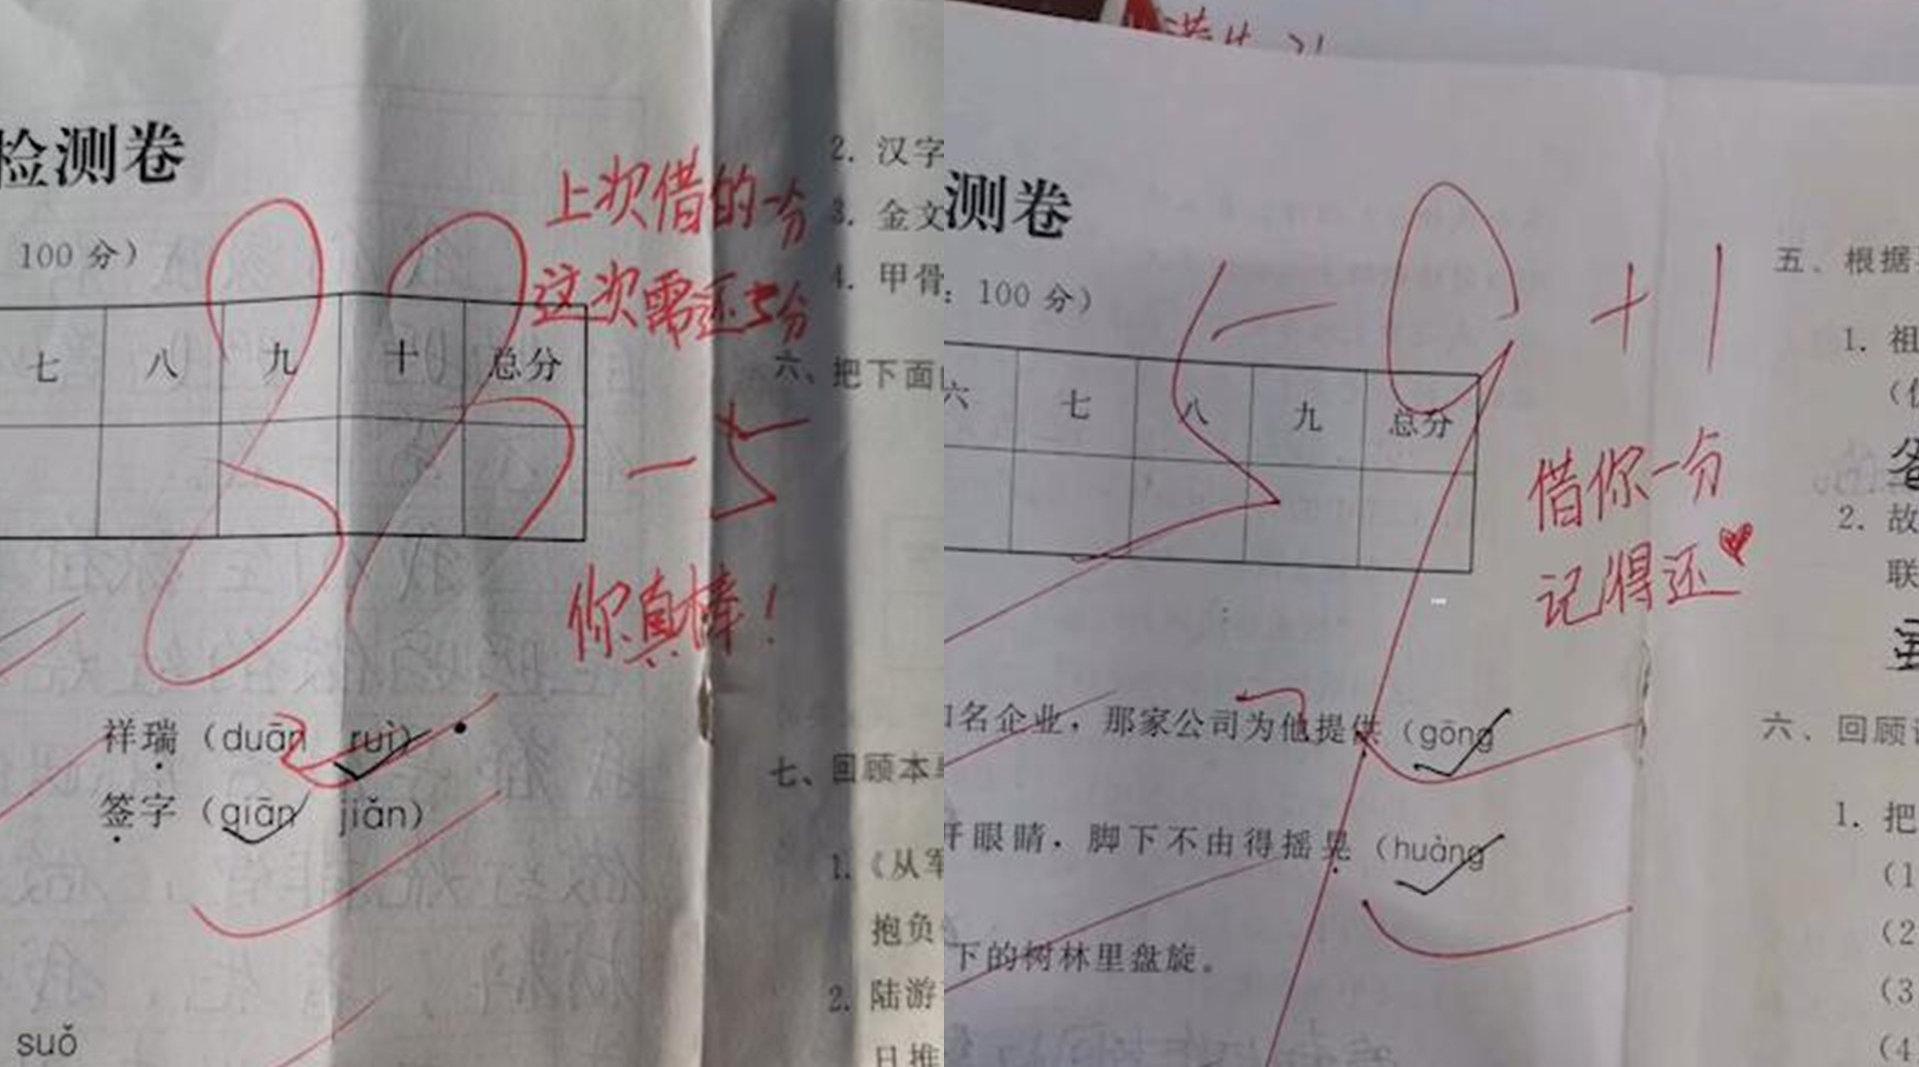 检测卷
100 分）
七 八 九 十 总分
上次借的一分
这次需还5分
-5
你真棒！
祥瑞（duān ruì）
签字（qiān jiǎn）
suǒ
2. 汉字
3. 金文
4. 甲骨
六、把下面
七、回顾本
1.《从军
抱负
2. 陆游
日推
测卷
：100 分）
六 七 八 九 总分
59 +1
借你一分
记得还
名企业，那家公司为他提供（gōng
开眼睛，脚下不由得摇晃（huàng
下的树林里盘旋。
五、根据
1. 祖
2. 故
联
六、回顾
1. 把
（1
（2
（3
（4